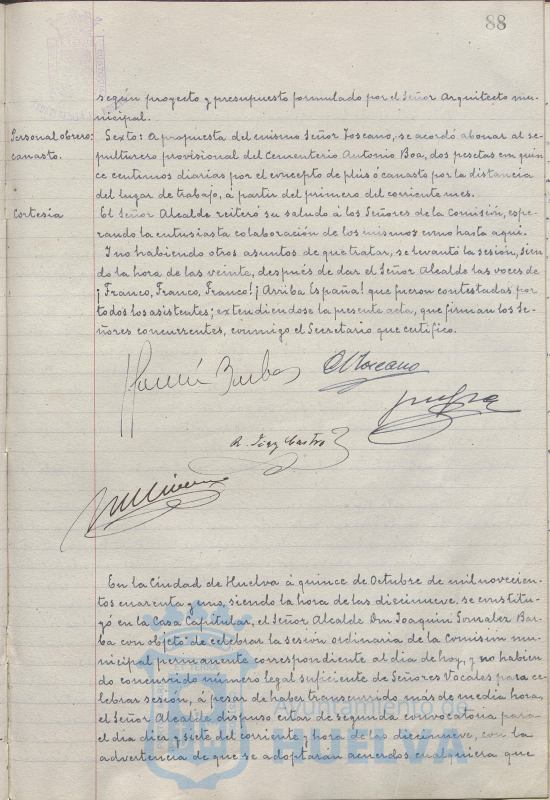 88
según proyecto y presupuesto formulado por el Señor Arquitecto mu-
nicipal.
Personal obrero: Sexto: A propuesta del mismo Señor Toscano, se acordó abonar al se-
canasto. pulturero provisional del Cementerio Antonio Boa, dos pesetas con quin-
ce centimos diarias por el concepto de plús ó canasto por la distancia
del lugar de trabajo, á partir del primero del corriente mes.
Cortesia El Señor Alcalde reiteró su saludo á los Señores de la Comisión, espe-
rando la entusiasta colaboración de los mismos como hasta aquí.
Y no habiendo otros asuntos de que tratar, se levantó la sesión, sien-
do la hora de las veinte, después de dar el Señor Alcalde las voces de
¡Franco, Franco, Franco! ¡Arriba España! que fueron contestadas por
todos los asistentes; extendiendose la presente acta, que firman los Se-
ñores concurrentes, conmigo el Secretario que certifico.
Barba
Toscano
En la Ciudad de Huelva á quince de Octubre de mil novecien-
tos cuarenta y uno, siendo la hora de las diecinueve, se constitu-
yó en la Casa Capitular, el Señor Alcalde Don Joaquin Gonzalez Bar-
ba con objeto de celebrar la sesión ordinaria de la Comisión mu-
nicipal permanente correspondiente al dia de hoy, y no habien-
do concurrido número legal suficiente de Señores Vocales para ce-
lebrar sesión, á pesar de haber transcurrido más de media hora,
el Señor Alcalde dispuso citar de segunda convocatoria para
el dia diez y siete del corriente y hora de las diecinueve, con la
advertencia de que se adoptarán acuerdos cualquiera que
Ayuntamiento de
HUELVA